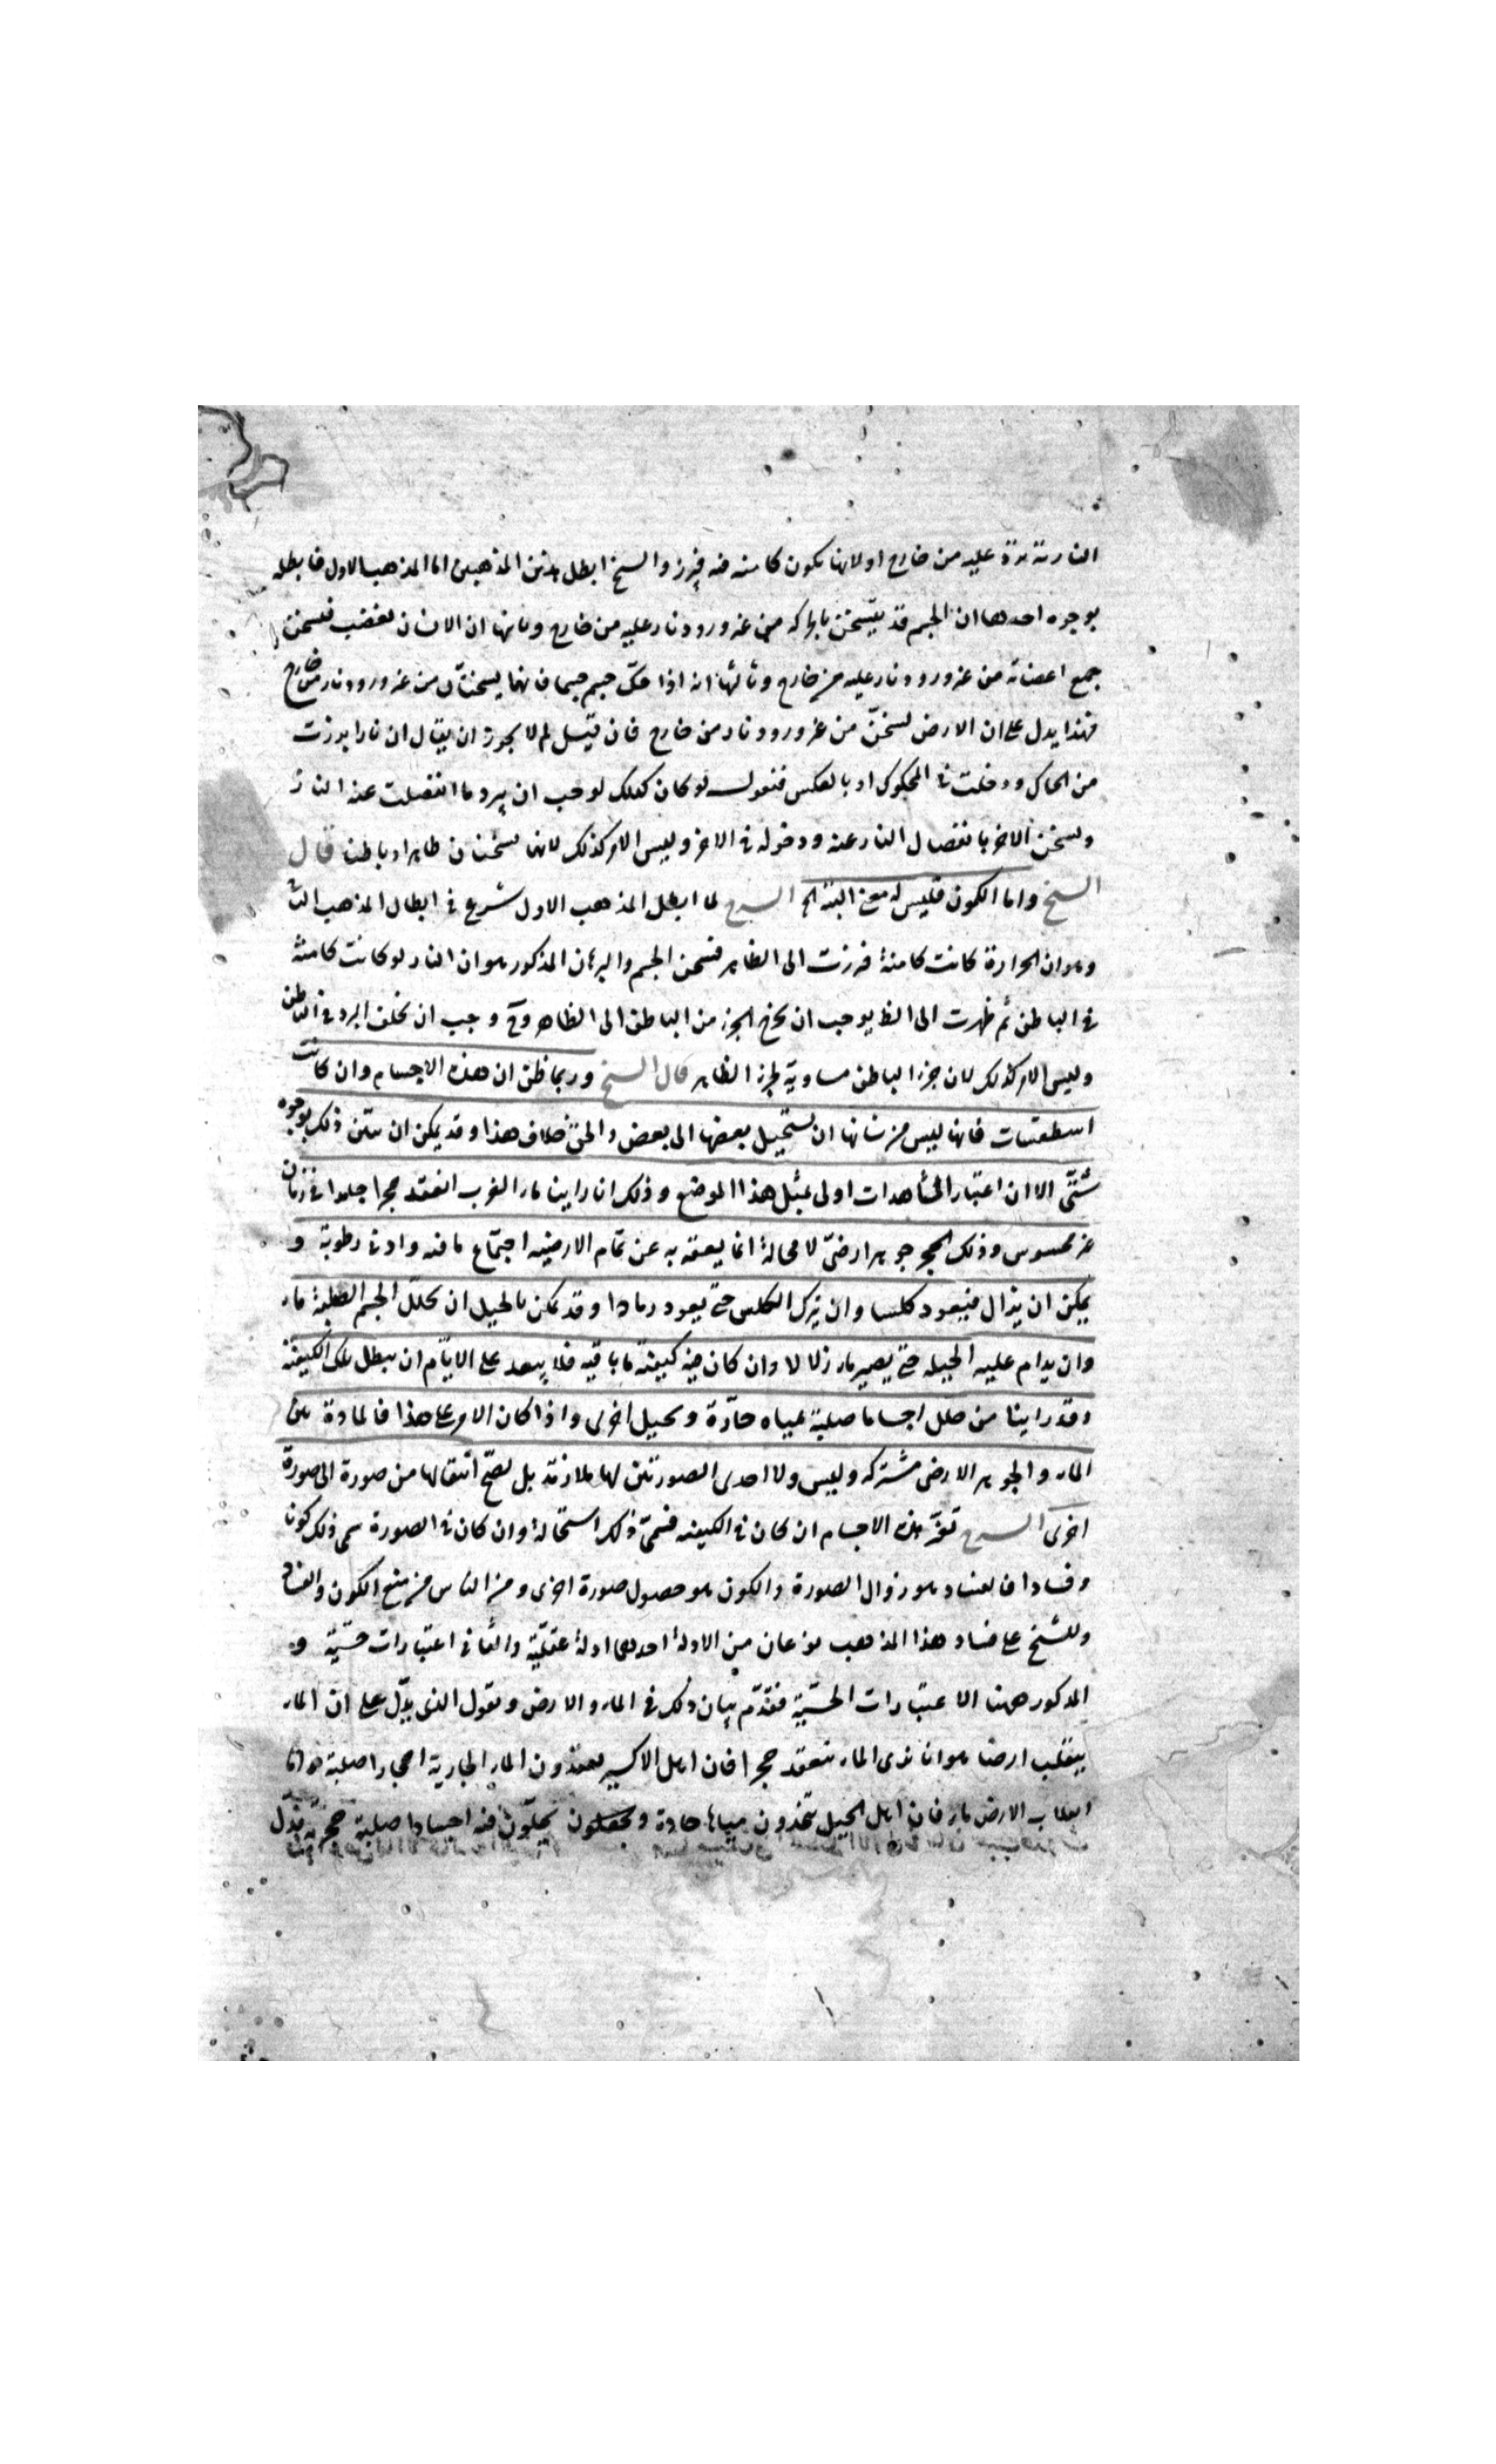 النارية ترد عليه من خارج او لانها تكون كامنة فيه فبرز والشيخ ابطل هذين المذهبين اما المذهب الاول فابطله
بوجوه احدها ان الجسم قد يتسخن بالحركة من غير ورود نار عليه من خارج وثانيها ان الانسان يغضب فيسخن
جميع اعضائه من غير ورود نار عليه من خارج وثالثها انه اذا حكّ جسم جسما فانهما يسخنان من غير ورود نار من خارج
فهذا يدل على ان الارض تسخن من غير ورود نار من خارج فان قيل لم لا يجوز ان يقال ان نارا برزت
من الحاك ودخلت في المحكوك او بالعكس فنقول لو كان كذلك لوجب ان يبرد ما انفصلت عنه النار
ويسخن الاخر بانفصال النار عنه ودخوله في الاخر وليس الامر كذلك لانهما يسخنان ظاهرا وباطنا قال
الشيخ واما الكمون فليس له معنى البتة الخ الشرح لما ابطل المذهب الاول شرع في ابطال المذهب الثا
وهو ان الحرارة كانت كامنة فبرزت الى الظاهر فسخن الجسم والبرهان المذكور هو ان النار لو كانت كامنة
في الباطن ثم ظهرت الى الظ يوجب ان يخرج الجزء من الباطن الى الظاهر وح وجب ان يخلف البرد في الباطن
وليس الامر كذلك لان جزء الباطن مساوية لجزء الظاهر قال الشيخ وربما ظن ان هذه الاجسام وان كانت
اسطقسات فانها ليس من شانها ان يستحيل بعضها الى بعض والحق خلاف هذا وقد يمكن ان يتبين ذلك بوجوه
شتّى الا ان اعتبار المشاهدات اولى بمثل هذا الموضع وذلك انا راينا ماء الغرب انعقد حجرا جلدا في زمان
غير محسوس وذلك الحجر جوهر ارضيّ لا محالة انما يعقه به عن تمام الارضية اجتماع ما فيه وادنى رطوبة و
يمكن ان يزال فيعود كلسا وان يترك الكلس حتى يعود رمادا وقد يمكن بالحيل ان يحلل الجسم الصلبة ماء
وان يدام عليه الحيلة حتى يصير ماء زلالا وان كان فيه كيفية ما باقية فلا يبعد على الايام ان يبطل تلك الكيفية
وقد راينا من حلل اجساما صلبة بمياه حادّة وبحيل اخرى واذا كان الامر على هذا فالمادة بين
الماء والجوهر الارضى مشتركة وليس ولا احدى الصورتين لها ملازمة بل يصح انتقالها من صورة الى صورة
اخرى الشرح تغيّر هذه الاجسام ان كان في الكيفية فسمّى ذلك استحالة وان كان في الصورة سمى ذلك كونا
وفسادا فالفساد هو زوال الصورة والكون هو حصول صورة اخرى ومن الناس من منع الكون والفساد
وللشيخ على فساد هذا المذهب نوعان من الادلة احدهما ادلة عقليّة والثانى اعتبارات حسّيّة و
المذكور ههنا الاعتبارات الحسّيّة فقدّم بيان ذلك في الماء والارض ونقول الذى يدلّ على ان الماء
ينقلب ارضا هو انا نرى الماء ينعقد حجرا فان اهل الاكسير يعقدون الماء الجارية احجارا صلبة واما
انقلاب الارض ماء فان اهل الحيل يتخذون مياها حادة ويحلّون فيه اجسادا صلبة حجرية فدل